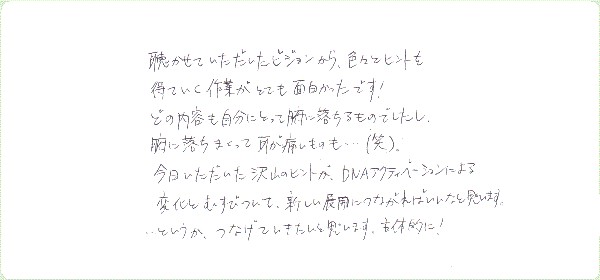 聴かせていただいたビジョンから、色々とヒントも
得ていく作業がとても面白かったです!
どの内容も自分にとって腑に落ちるものでしたし、
腑に落ちまくって耳が痛いものも…(笑)。
今日いただいた沢山のヒントが、DNAアクティベーションによる
変化とむすびついて、新しい展開につながればいいなと思います。
…というか、つなげていきたいと思います。主体的に!